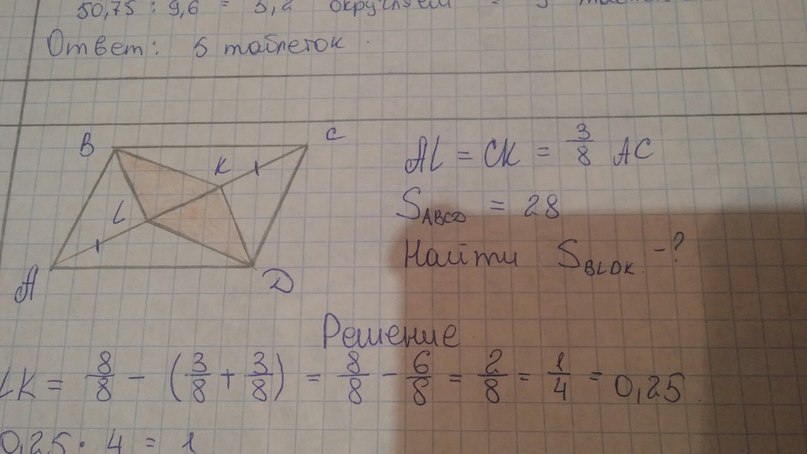 50,75 : 9,6 = 5,2 округляем = 5
Ответ: 5 таблеток.
B C
K
L
A D
AL = CK = 3/8 AC
S ABCD = 28
Найти S BLDK - ?
Решение
LK = 8/8 - (3/8 + 3/8) = 8/8 - 6/8 = 2/8 = 1/4 = 0,25
0,25 · 4 = 1